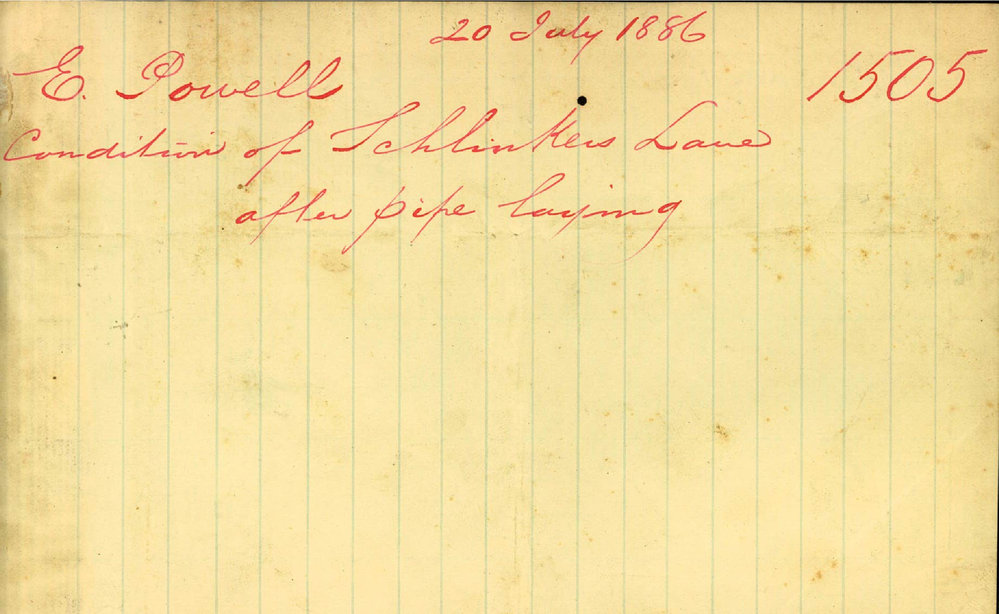 20 July 1886
E. Powell 1505
Condition of Schlinkers Lane
after pipe laying